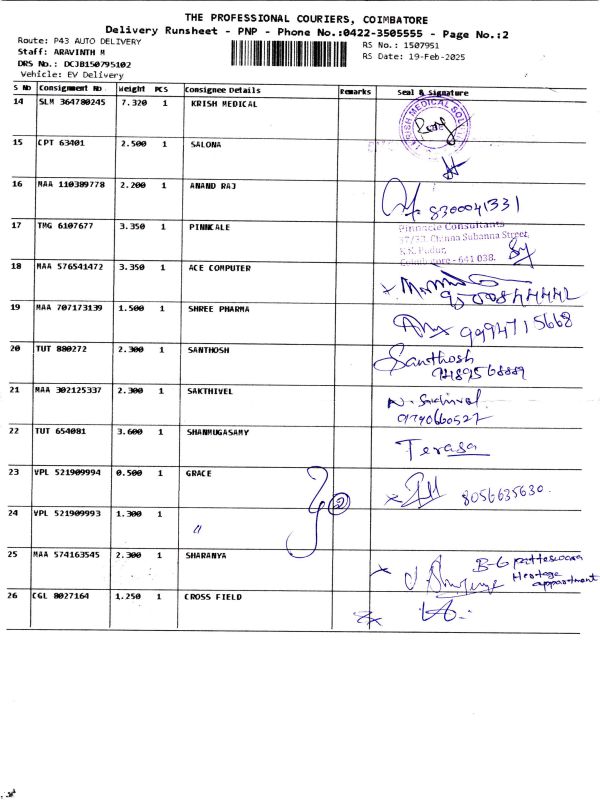 THE PROFESSIONAL COURIERS, COIMBATORE
Delivery Runsheet - PNP - Phone No.:0422-3505555 - Page No.:2
Route: P43 AUTO DELIVERY
RS No.: 1507951
Staff: ARAVINTH M
RS Date: 19-Feb-2025
DRS No.: DCJB150795102
Vehicle: EV Delivery
S No Consignment No Weight PCS Consignee Details Remarks Seal & Signature
14 SLM 364780245 7.320 1 KRISH MEDICAL
15 CPT 63401 2.500 1 SALONA
16 MAA 110389778 2.200 1 ANAND RAJ
8300041331
17 TMG 6107677 3.350 1 PINNCALE
Pinnacle Consultants
37/33, Channa Subanna Street,
K.K. Pudur,
Coimbatore - 641 038.
18 MAA 576541472 3.350 1 ACE COMPUTER
19 MAA 707173139 1.500 1 SHREE PHARMA
9994715668
20 TUT 880272 2.300 1 SANTHOSH
Santhosh
21 MAA 302125337 2.300 1 SAKTHIVEL
22 TUT 654081 3.600 1 SHANMUGASAMY
Terasa
23 VPL 521909994 0.500 1 GRACE
2
8056635630
24 VPL 521909993 1.300 1
"
25 MAA 574163545 2.300 1 SHARANYA
B-G
Heritage
appartment
26 CGL 8027164 1.250 1 CROSS FIELD